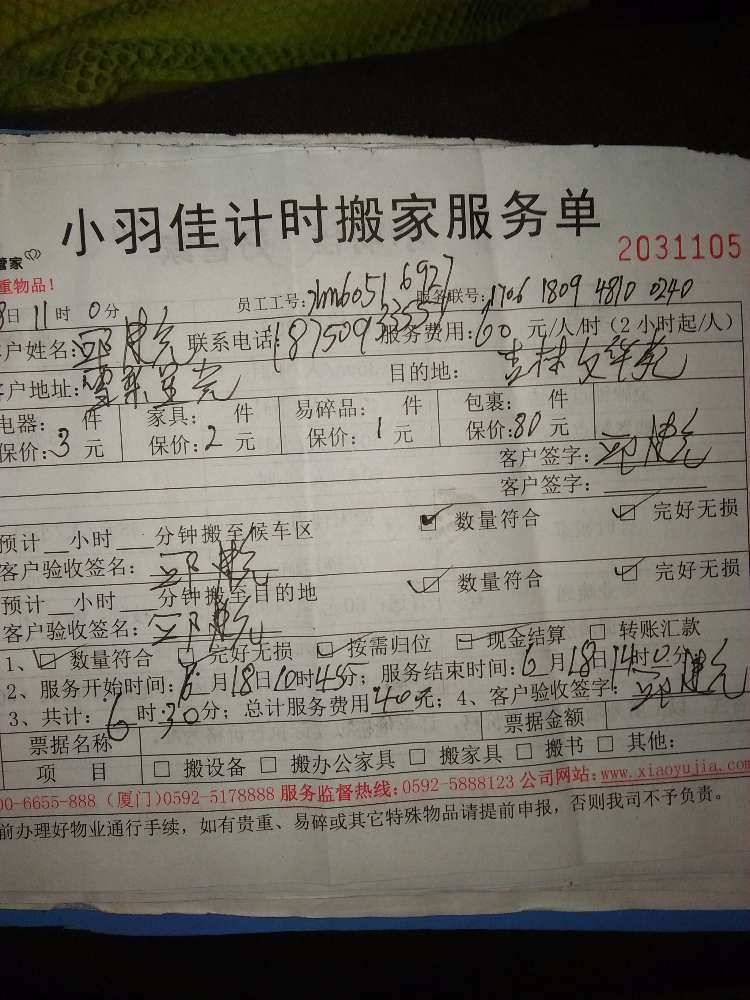 小羽佳计时搬家服务单
管家
2031105
重物品!
日 11时 0分 员工工号: 服务联号: 1706 1809 4810 0240
客户姓名: 联系电话: 服务费用: 60 元/人/时 (2小时起/人)
客户地址: 目的地: 吉林
电器: 件 家具: 件 易碎品: 件 包裹: 件
保价: 3 元 保价: 2 元 保价: 1 元 保价: 80 元
客户签字:
客户签字:
预计__小时___分钟搬至候车区 数量符合 完好无损
客户验收签名:
预计__小时___分钟搬至目的地 数量符合 完好无损
客户验收签名:
1、 数量符合 完好无损 按需归位 现金结算 转账汇款
2、服务开始时间: 6月18日10时45分; 服务结束时间: 6月18日14时0分
3、共计: 6时30分; 总计服务费用 40元; 4、客户验收签字:
票据名称 票据金额
项 目 搬设备 搬办公家具 搬家具 搬书 其他:
00-6655-888 (厦门)0592-5178888 服务监督热线:0592-5888123 公司网站:www.xiaoyujia.com
前办理好物业通行手续,如有贵重、易碎或其它特殊物品请提前申报,否则我司不予负责。